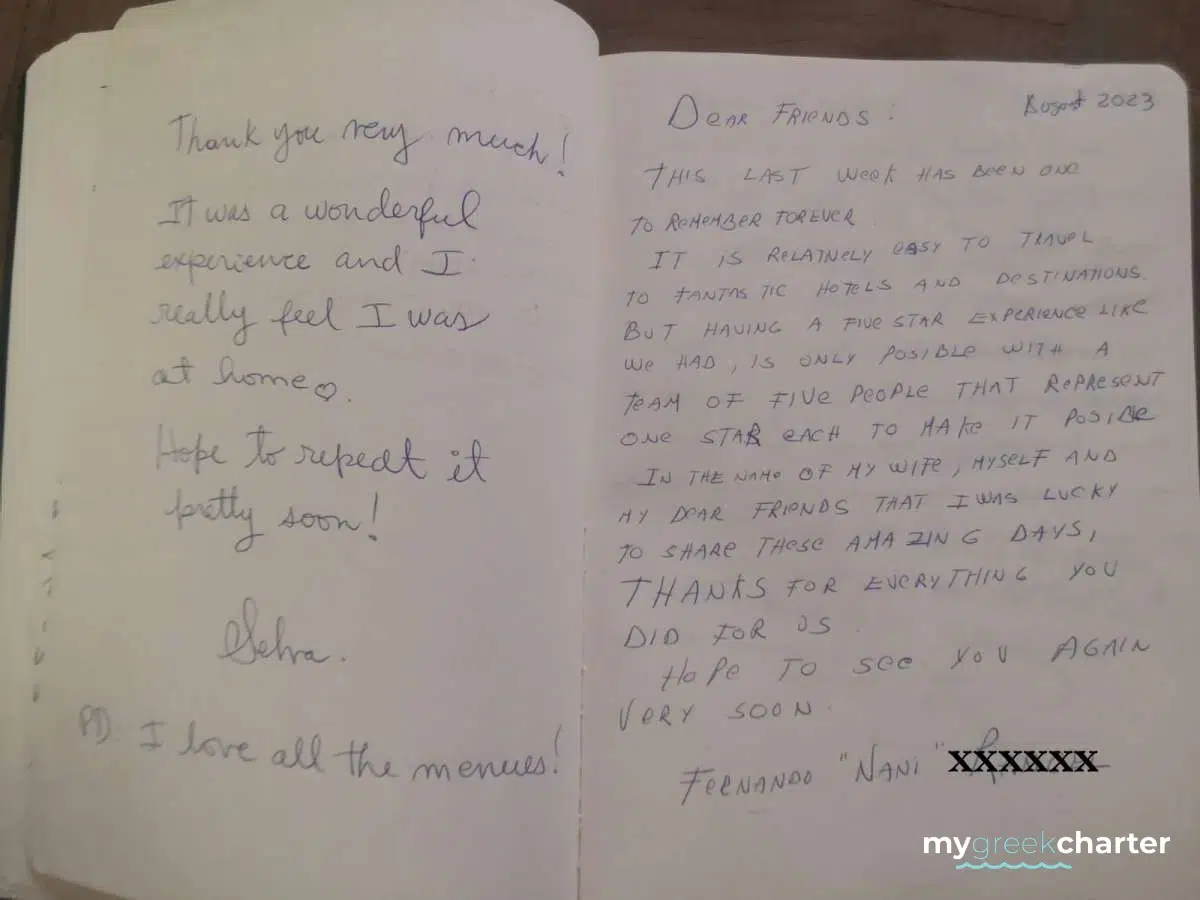 Thank you very much!
It was a wonderful
experience and I
really feel I was
at home♡.
Hope to repeat it
pretty soon!
Selva.
PD. I love all the menues!
August 2023
DEAR FRIENDS:
THIS LAST WEEK HAS BEEN ONE
TO REMEMBER FOREVER
IT IS RELATIVELY EASY TO TRAVEL
TO FANTASTIC HOTELS AND DESTINATIONS.
BUT HAVING A FIVE STAR EXPERIENCE LIKE
WE HAD, IS ONLY POSIBLE WITH A
TEAM OF FIVE PEOPLE THAT REPRESENT
ONE STAR EACH TO MAKE IT POSIBLE
IN THE NAME OF MY WIFE, MYSELF AND
MY DEAR FRIENDS THAT I WAS LUCKY
TO SHARE THESE AMAZING DAYS,
THANKS FOR EVERYTHING YOU
DID FOR US.
HOPE TO SEE YOU AGAIN
VERY SOON.
FERNANDO "NANI" XXXXXX
mygreekcharter